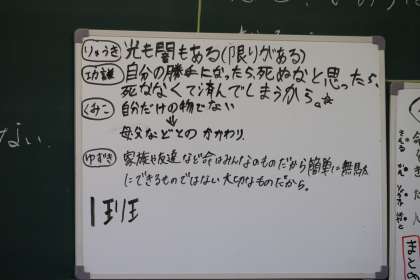 りょうき 光も闇もある(限りがある)
自分の勝手になったら死ぬなと思ったら、
死ななくて済んでしまうから。☆
くみこ 自分だけの物でない
↓
母父などとのかかわり
ゆずき 家族や友達など命はみんなのものだから簡単に無駄
にできるものではない大切なものだから。
1班
ない
まと